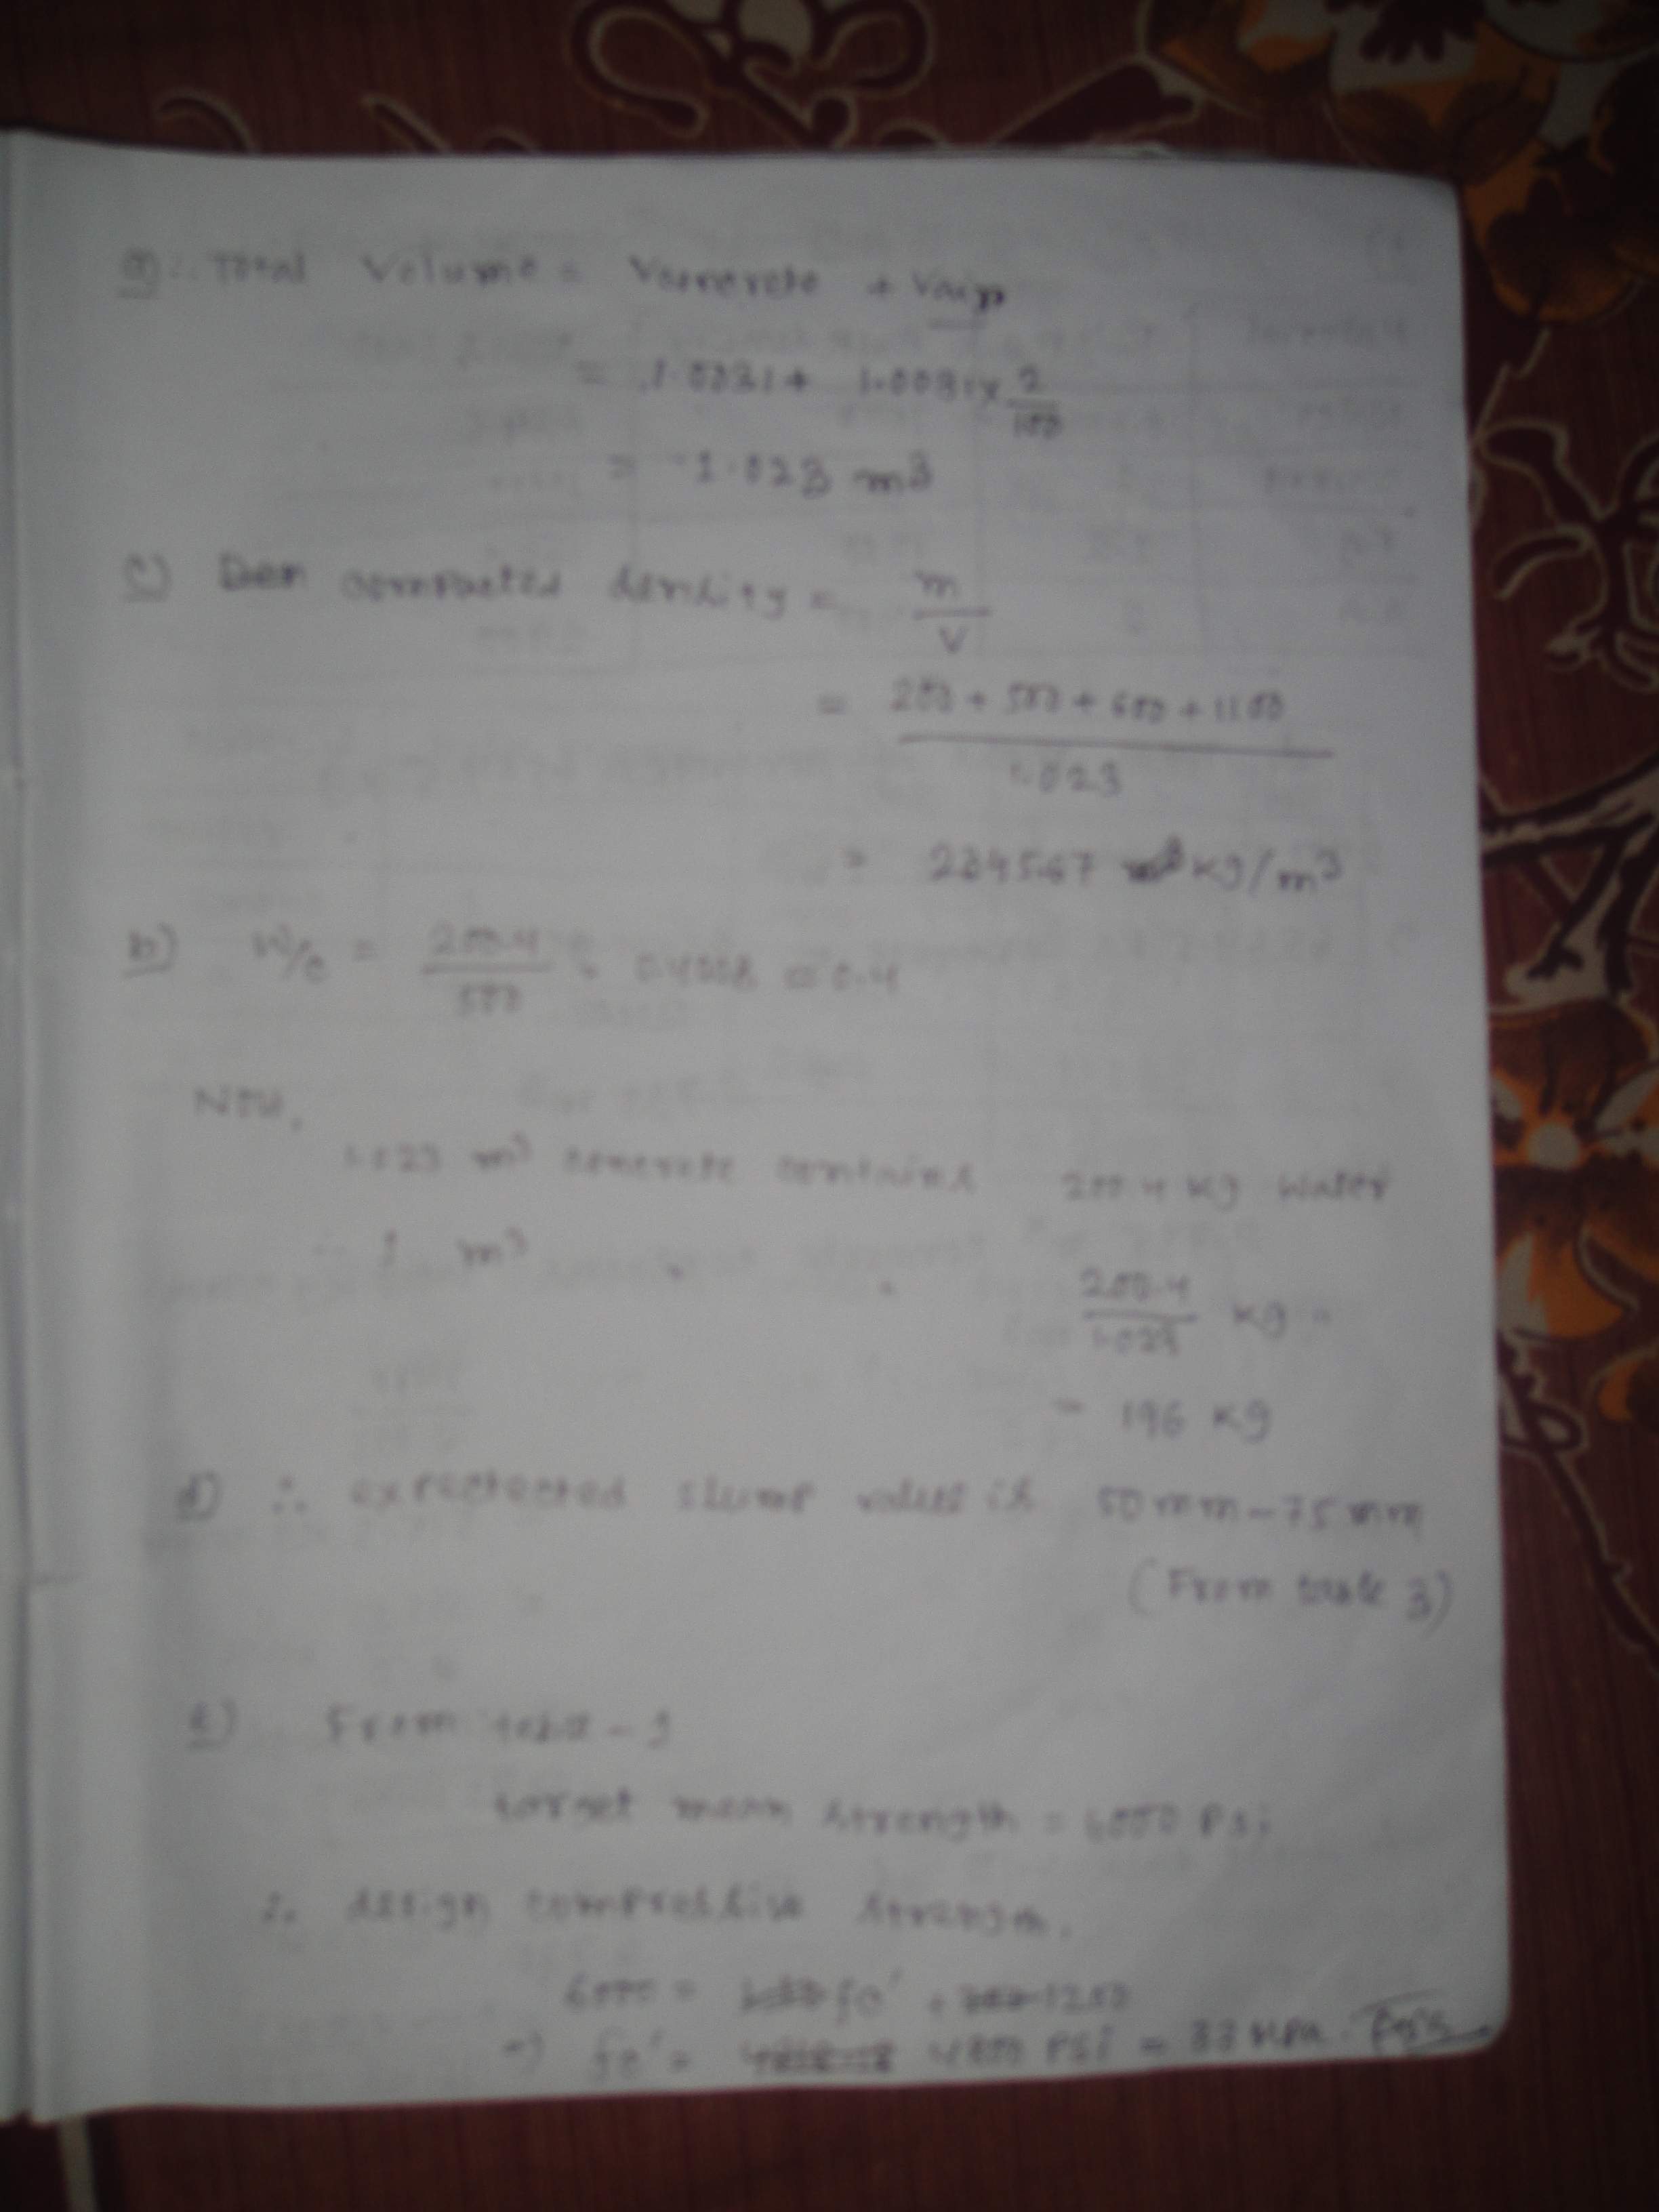 a) ∴ Total Volume = Vconcrete + Vair
= 1.0031 + 1.0031 × 2/100
= 1.023 m³
c) Den compacted density = m/V
= 200 + 500 + 600 + 1100 / 1.023
= 2345.67 kg/m³
b) W/c = 200.4/500 = 0.4008 = 0.4
Now,
1.023 m³ concrete contains 200.4 kg water
∴ 1 m³ " " 200.4/1.023 kg "
= 196 kg
d) ∴ expectected slump value is 50mm-75mm
(From table 3)
e) From table-1
target mean strength = 6000 Psi
∴ design compressive strength,
6000 = fc' + 1200
⇒ fc' = 4800 PSi = 33 MPa.